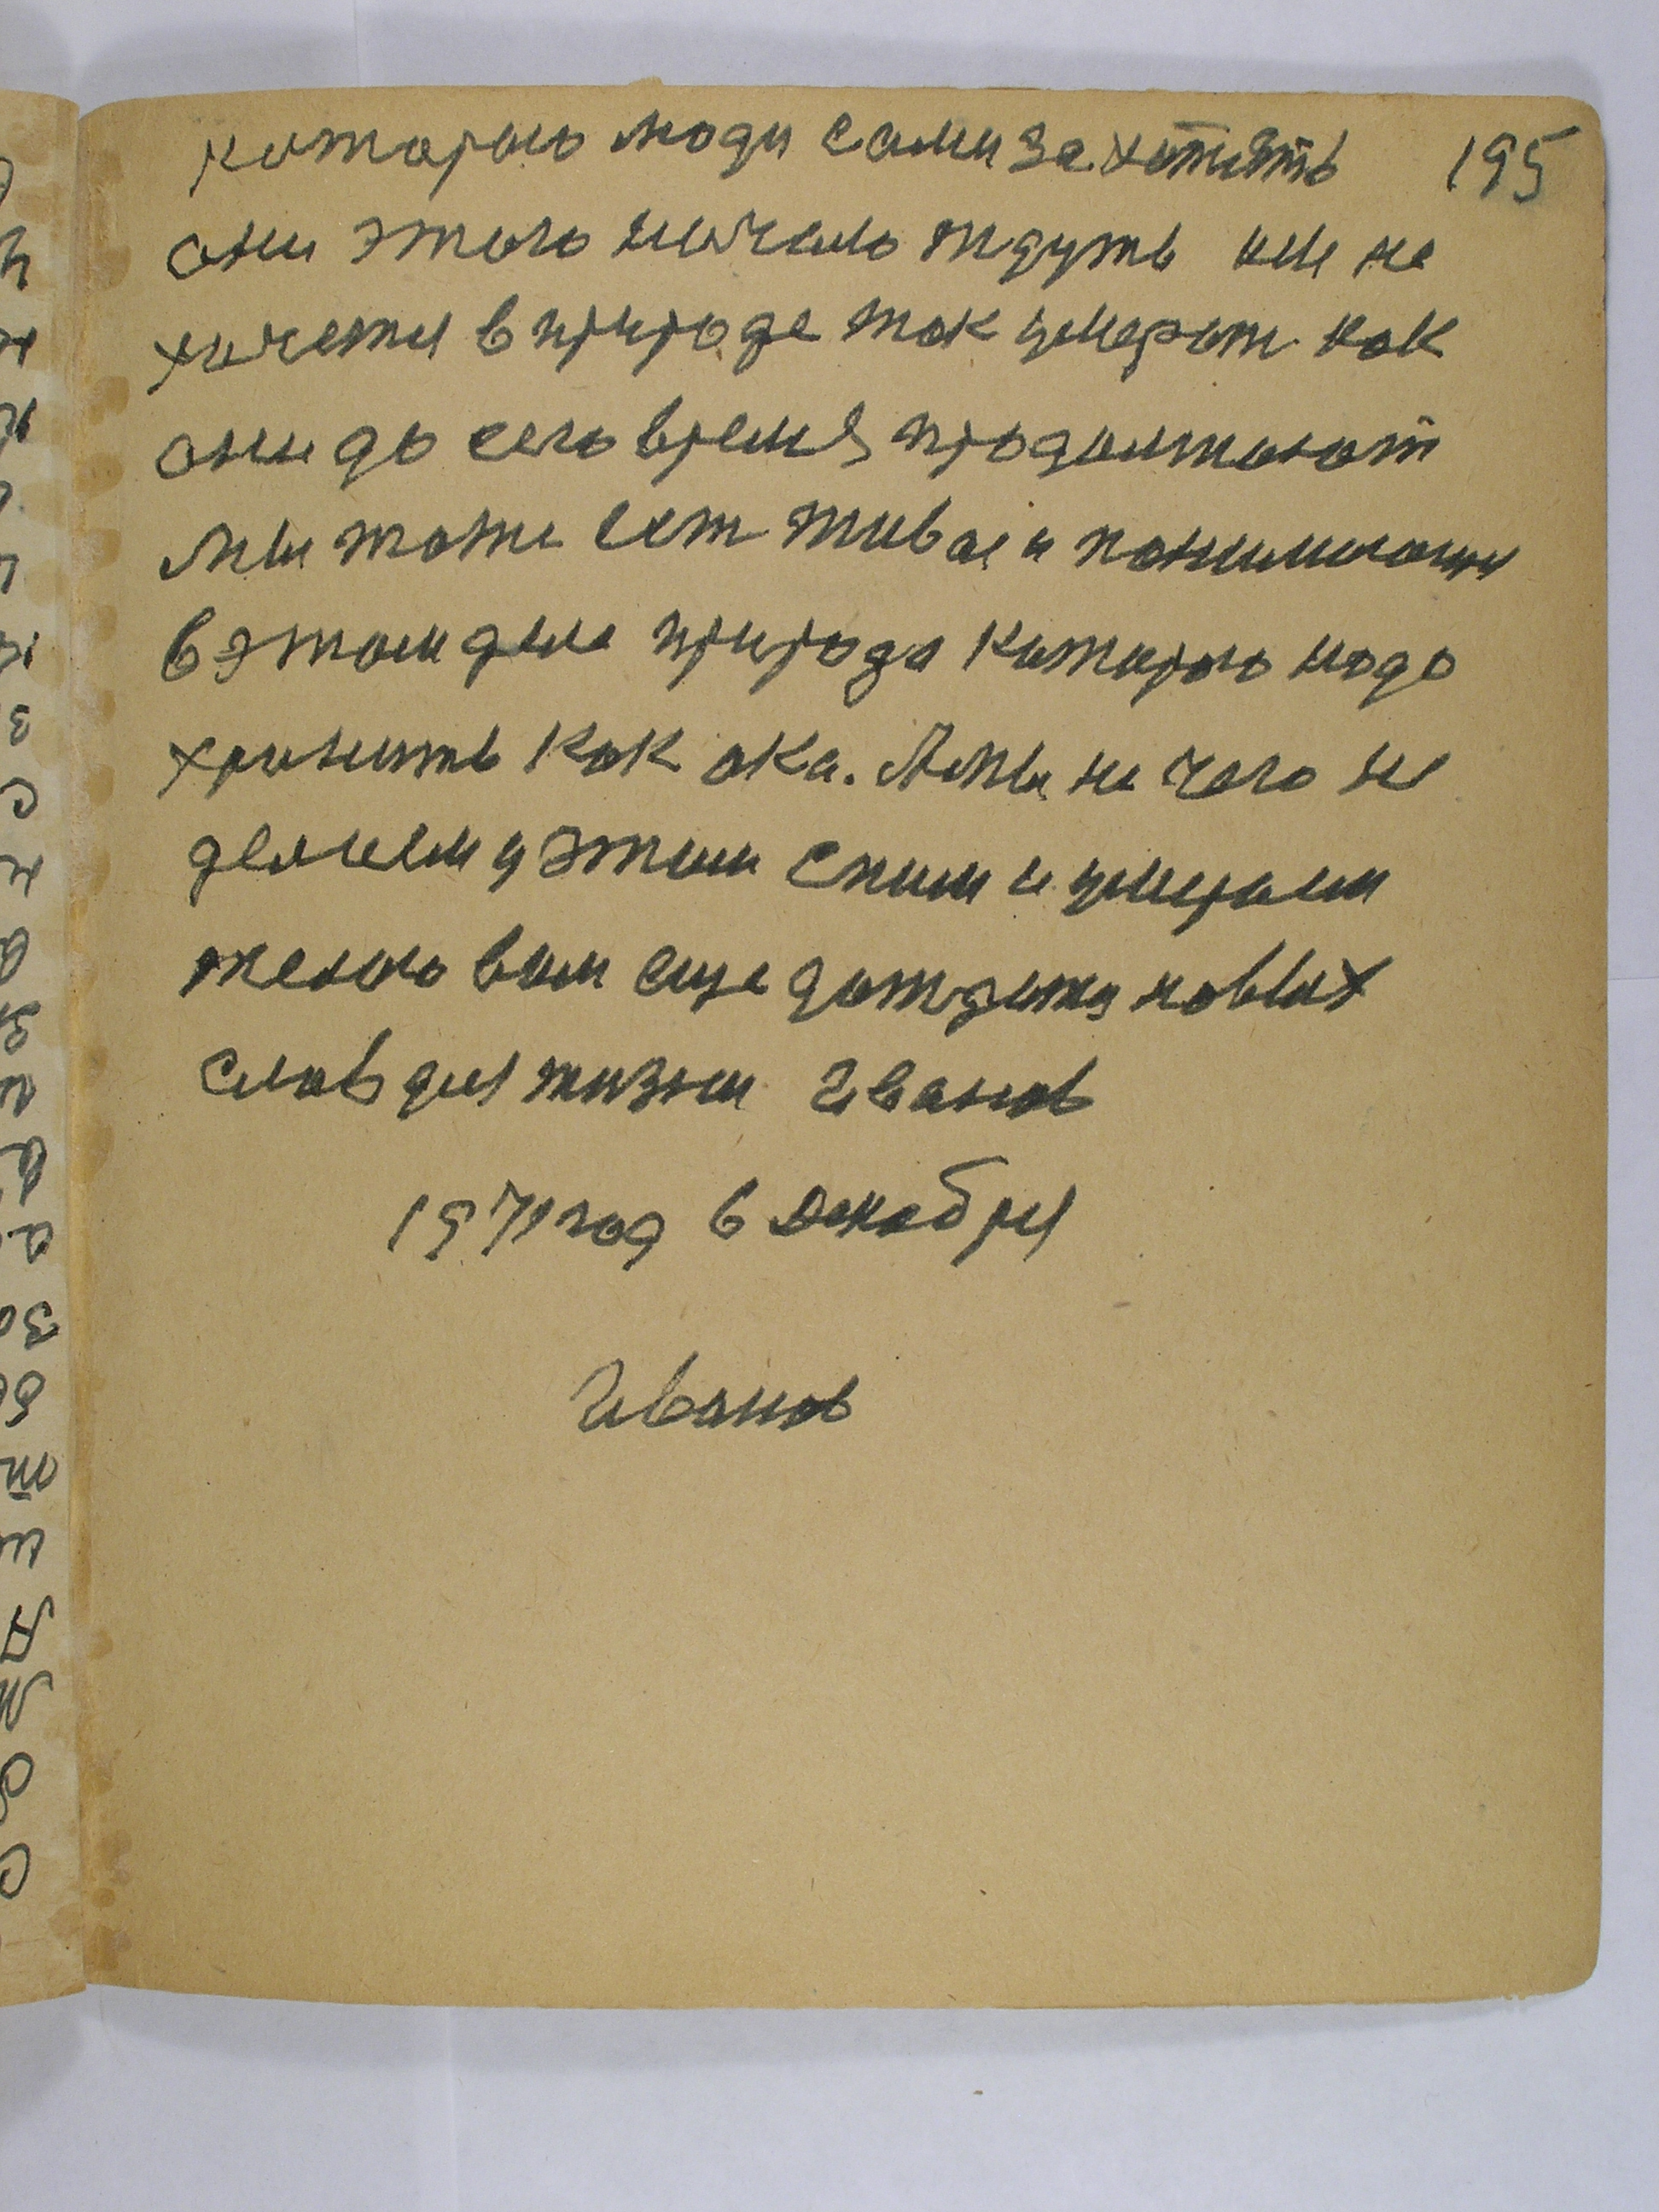 195
которого люди сами захотять
они этого начало ждуть им не
хочетя в природе так умерат как
они до сего время продолжают
Мы тоже ест живое и понимающи
в этом деле природа которого надо
хранить как ока. А мы не чего не
делаем у этим спим и умираем
желаю вам еще дождатя новых
слов для жизни Иванов
1971 год 6 Декабря
Иванов